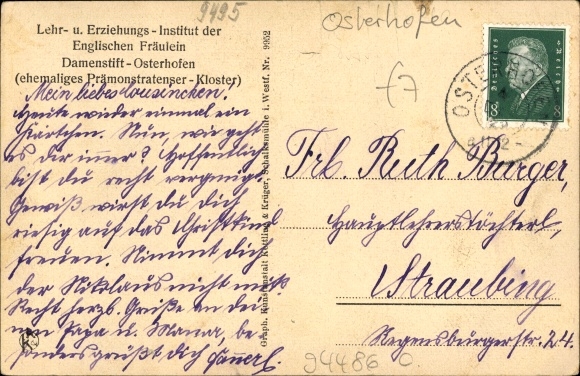 9495
Osterhofen
Lehr- u. Erziehungs-Institut der
Englischen Fräulein
Damenstift-Osterhofen
(ehemaliges Prämonstratenser-Kloster)
Deutsches Reich
8 8
Mein liebes Cousinchen!
Heute wieder einmal ein
Kärtchen. Nun, wie geht
es dir immer? Hoffentlich
bist du recht vergnügt.
Gewiß wirst du dich
riesig auf das Christkind
freuen. Nimmt dich
der Nikolaus nicht mit?
Recht herzl. Grüße an dei-
nen Papa u. Mama, be-
sonders grüßt dich
Graph. Kunstanstalt Kettling & Krüger, Schalksmühle i. Westf. Nr. 9952
Frl. Ruth Burger,
Hauptlehrerstöchterl,
Straubing
Regensburgerstr. 24.
94486